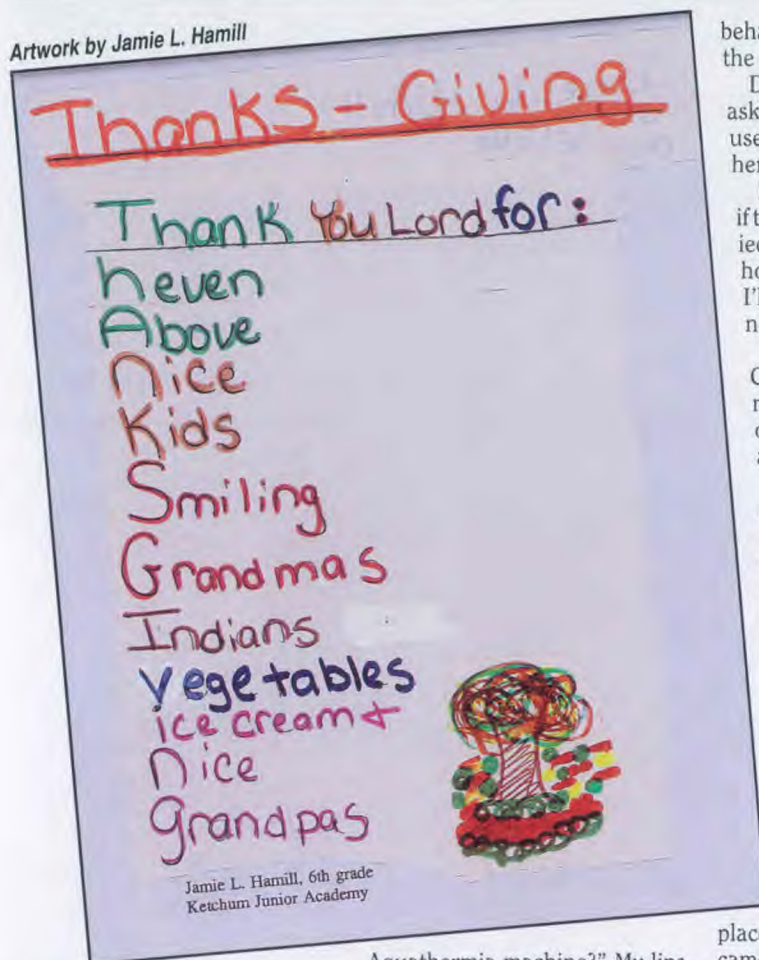 Artwork by Jamie L. Hamill
Thanks - Giving
Thank You Lord for:
heven
Above
Nice
Kids
Smiling
Grandmas
Indians
Vegetables
ice cream +
Nice
grandpas
Jamie L. Hamill, 6th grade
Ketchum Junior Academy
the
ask
use
her
if
place